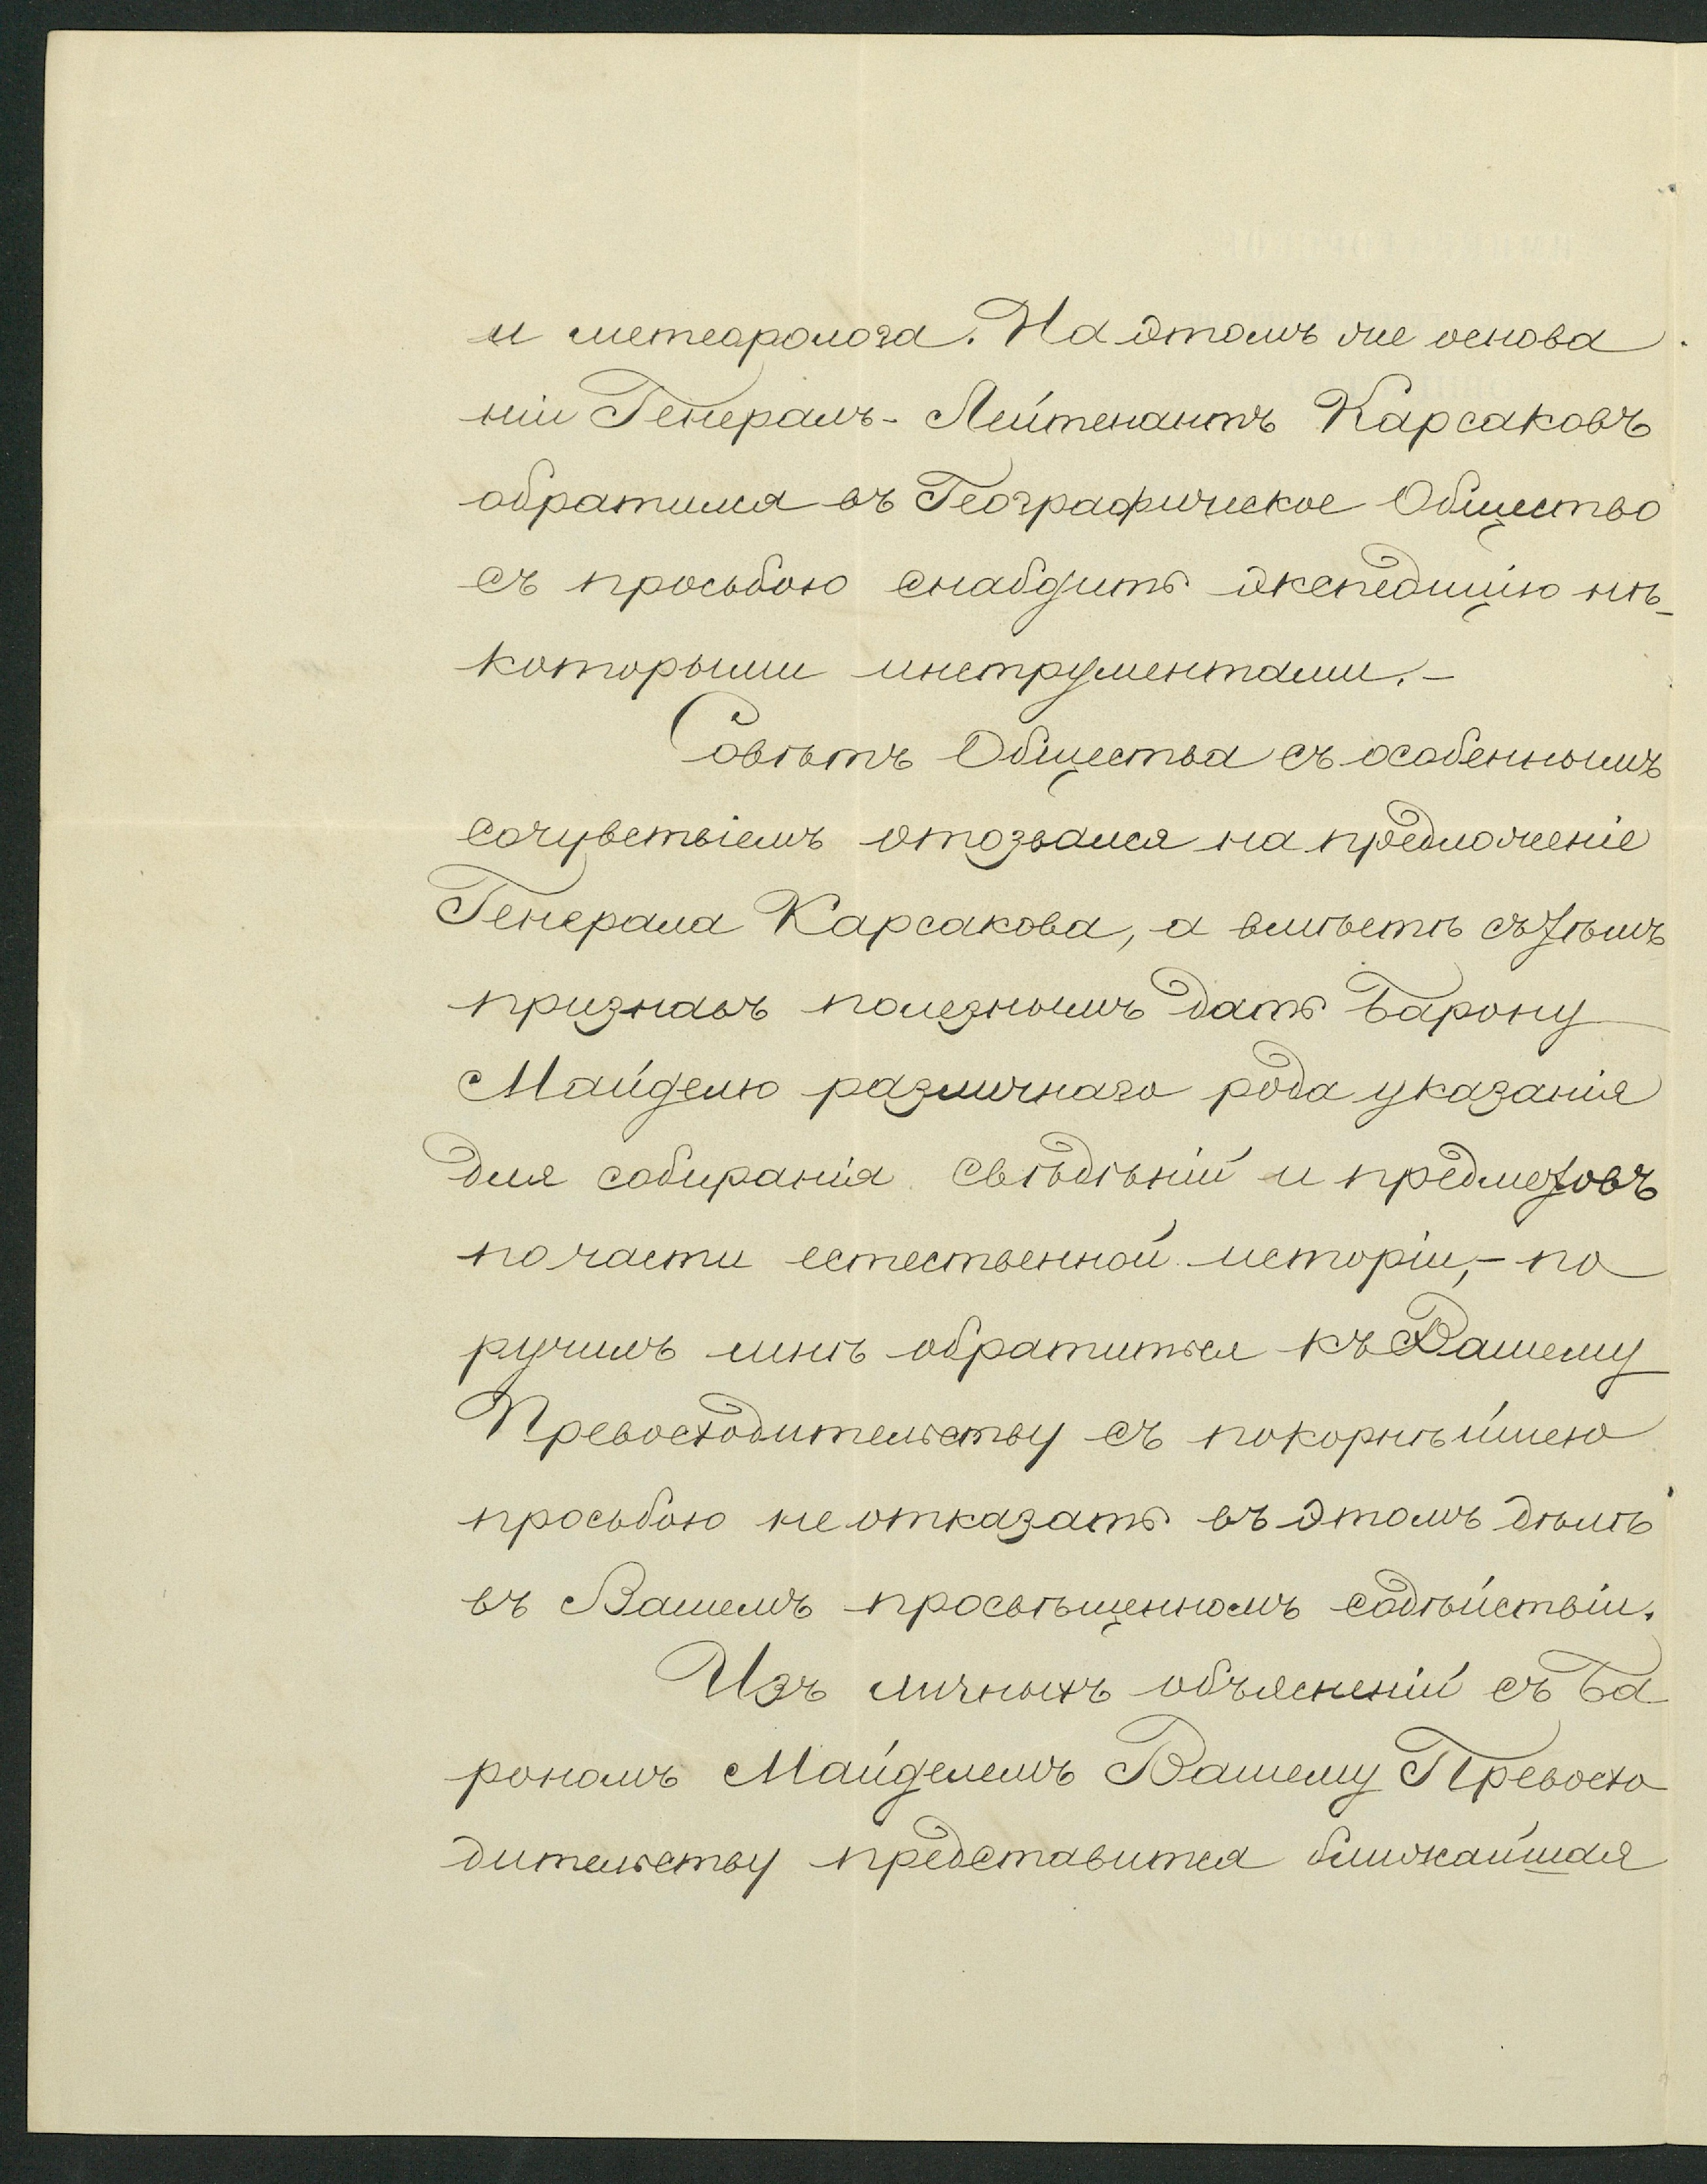 и метеоролога. На этомъ же основа
ніи Генералъ-Лейтенантъ Карсаковъ
обратился въ Географическое Общество
съ просьбою снабдить экспедицію нѣ-
которыми инструментами.-
Совѣтъ Общества съ особеннымъ
сочувствіемъ отозвался на предложеніе
Генерала Карсакова, а вмѣстѣ съ тѣмъ
призналъ полезнымъ дать Барону
Майделю различнаго рода указанія
для собиранія свѣдѣній и предметовъ
по части естественной исторіи,- по
ручилъ мнѣ обратиться къ Вашему
Превосходительству съ покорнѣйшею
просьбою не отказать въ этомъ дѣлѣ
въ Вашемъ просвѣщенномъ содѣйствіи.
Изъ личныхъ объясненій съ Ба
рономъ Майделемъ Вашему Превосхо
дительству представится ближайшая